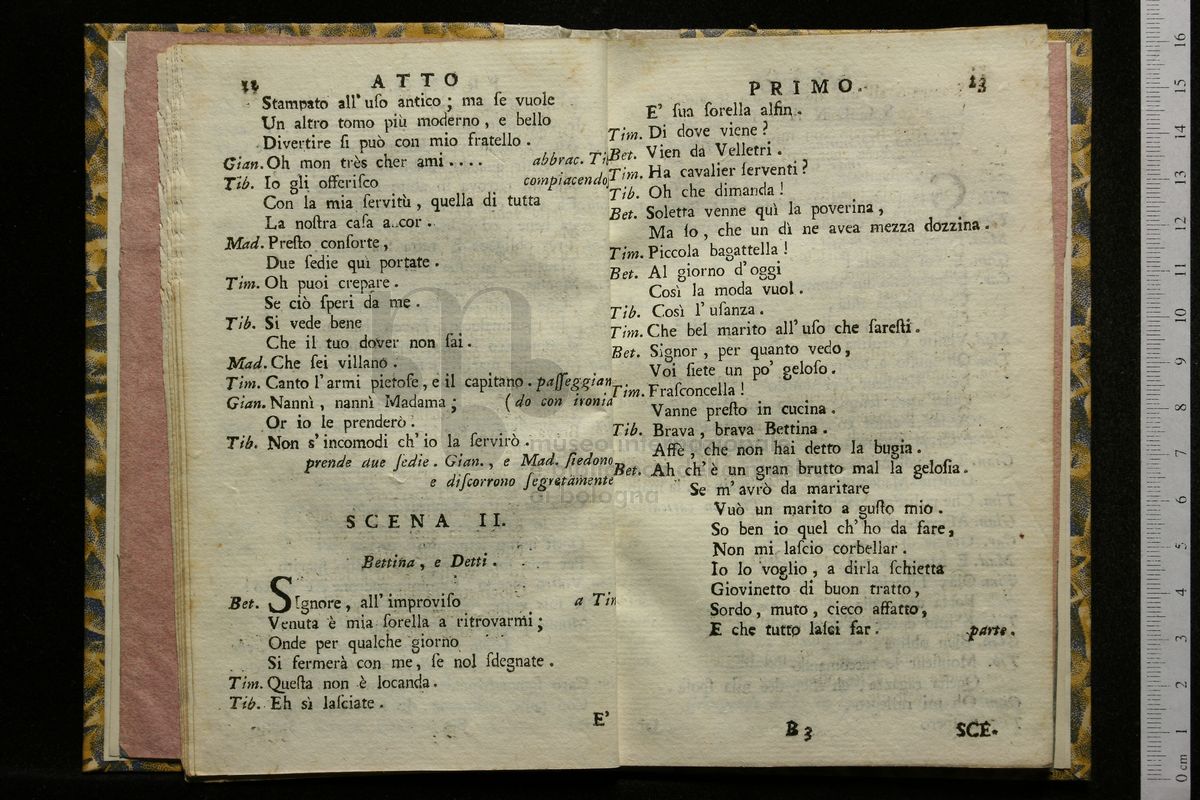 12 ATTO
Stampato all' uſo antico ; ma ſe vuole
Un altro tomo più moderno , e bello
Divertire ſi può con mio fratello .
Gian. Oh mon très cher ami . . . . abbrac. Ti
Tib. Io gli offeriſco compiacendo
Con la mia ſervitù , quella di tutta
La noſtra caſa a..cor .
Mad. Preſto conſorte ,
Due ſedie quì portate .
Tim. Oh puoi crepare .
Se ciò ſperi da me .
Tib. Si vede bene
Che il tuo dover non ſai .
Mad. Che ſei villano .
Tim. Canto l' armi pietoſe , e il capitano . paſſeggian
Gian. Nannì , nannì Madama ; ( do con ironia
Or io le prenderò .
Tib. Non s' incomodi ch' io la ſervirò .
prende due ſedie . Gian. , e Mad. ſiedono
e diſcorrono ſegretamente
SCENA II.
Bettina , e Detti .
Bet. SIgnore , all' improviſo a Tim
Venuta è mia ſorella a ritrovarmi ;
Onde per qualche giorno
Si fermerà con me , ſe nol ſdegnate .
Tim. Queſta non è locanda .
Tib. Eh sì laſciate .
E'
PRIMO. 13
E' ſua ſorella alfin .
Tim. Di dove viene ?
Bet. Vien da Velletri .
Tim. Ha cavalier ſerventi ?
Tib. Oh che dimanda !
Bet. Soletta venne quì la poverina ,
Ma ſo , che un dì ne avea mezza dozzina .
Tim. Piccola bagattella !
Bet. Al giorno d' oggi
Così la moda vuol .
Tib. Così l' uſanza .
Tim. Che bel marito all' uſo che ſareſti .
Bet. Signor , per quanto vedo ,
Voi ſiete un po' geloſo .
Tim. Fraſconcella !
Vanne preſto in cucina .
Tib. Brava , brava Bettina .
Affè , che non hai detto la bugia .
Bet. Ah ch' è un gran brutto mal la geloſia .
Se m' avrò da maritare
Vuò un marito a guſto mio .
So ben io quel ch' ho da fare ,
Non mi laſcio corbellar .
Io lo voglio , a dirla ſchietta
Giovinetto di buon tratto ,
Sordo , muto , cieco affatto ,
E che tutto laſci far . parte .
B 3 SCE-
museo internazionale
di bologna
16 15 14 13 12 11 10 9 8 7 6 5 4 3 2 1 0 cm